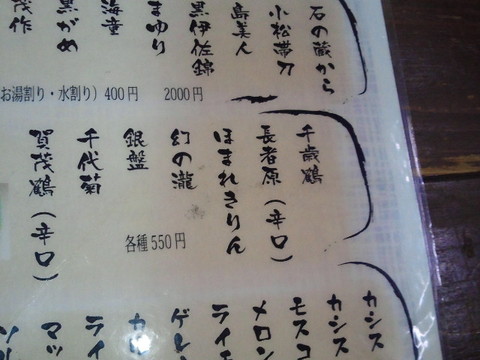 石の蔵から
小松帯刀
島美人
黒伊佐錦
まゆり
海童
黒がめ
茂作
お湯割り・水割り）400円 2000円
千歳鶴
長者原（辛口）
ほまれきりん
幻の瀧
銀盤
千代菊
賀茂鶴（辛口）
各種550円
カシス
カシス
モスコ
メロン
ライチ
ゲレ
カル
ライ
マッ
ソル